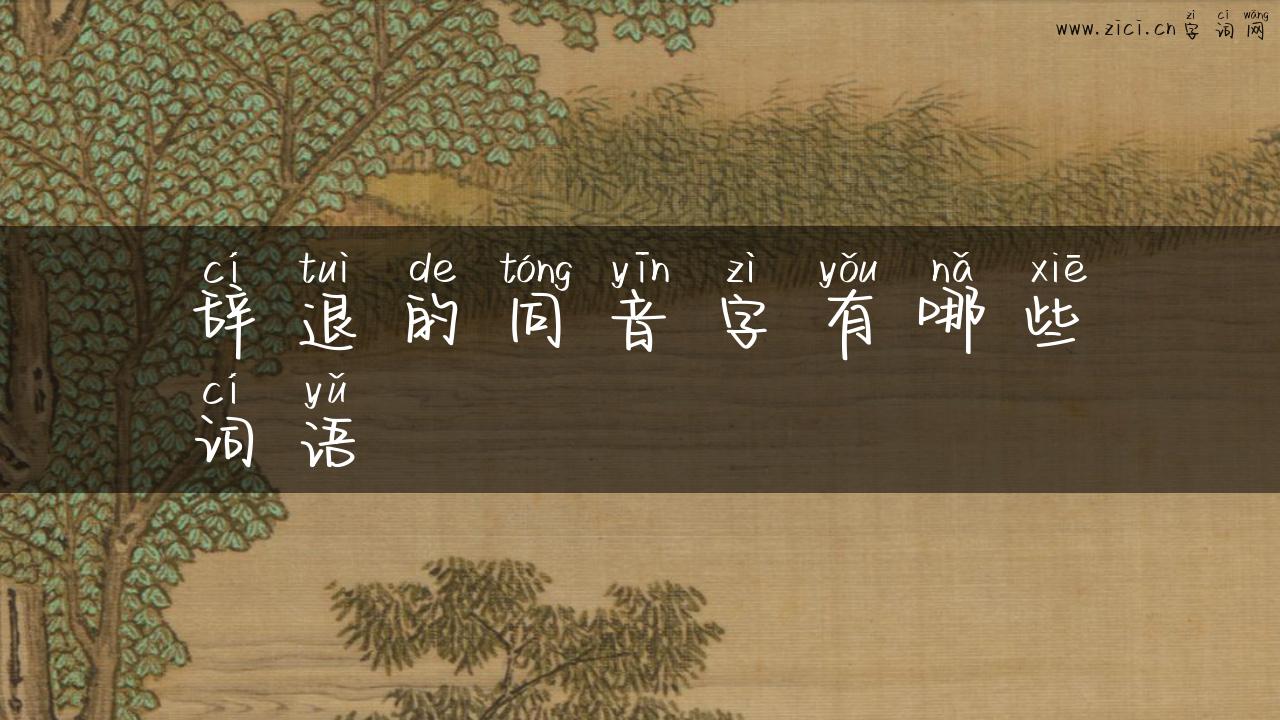 zì cí wǎng
www.zici.cn 字词网
cí tuì de tóng yīn zì yǒu nǎ xiē
辞退的同音字有哪些
cí yǔ
词语